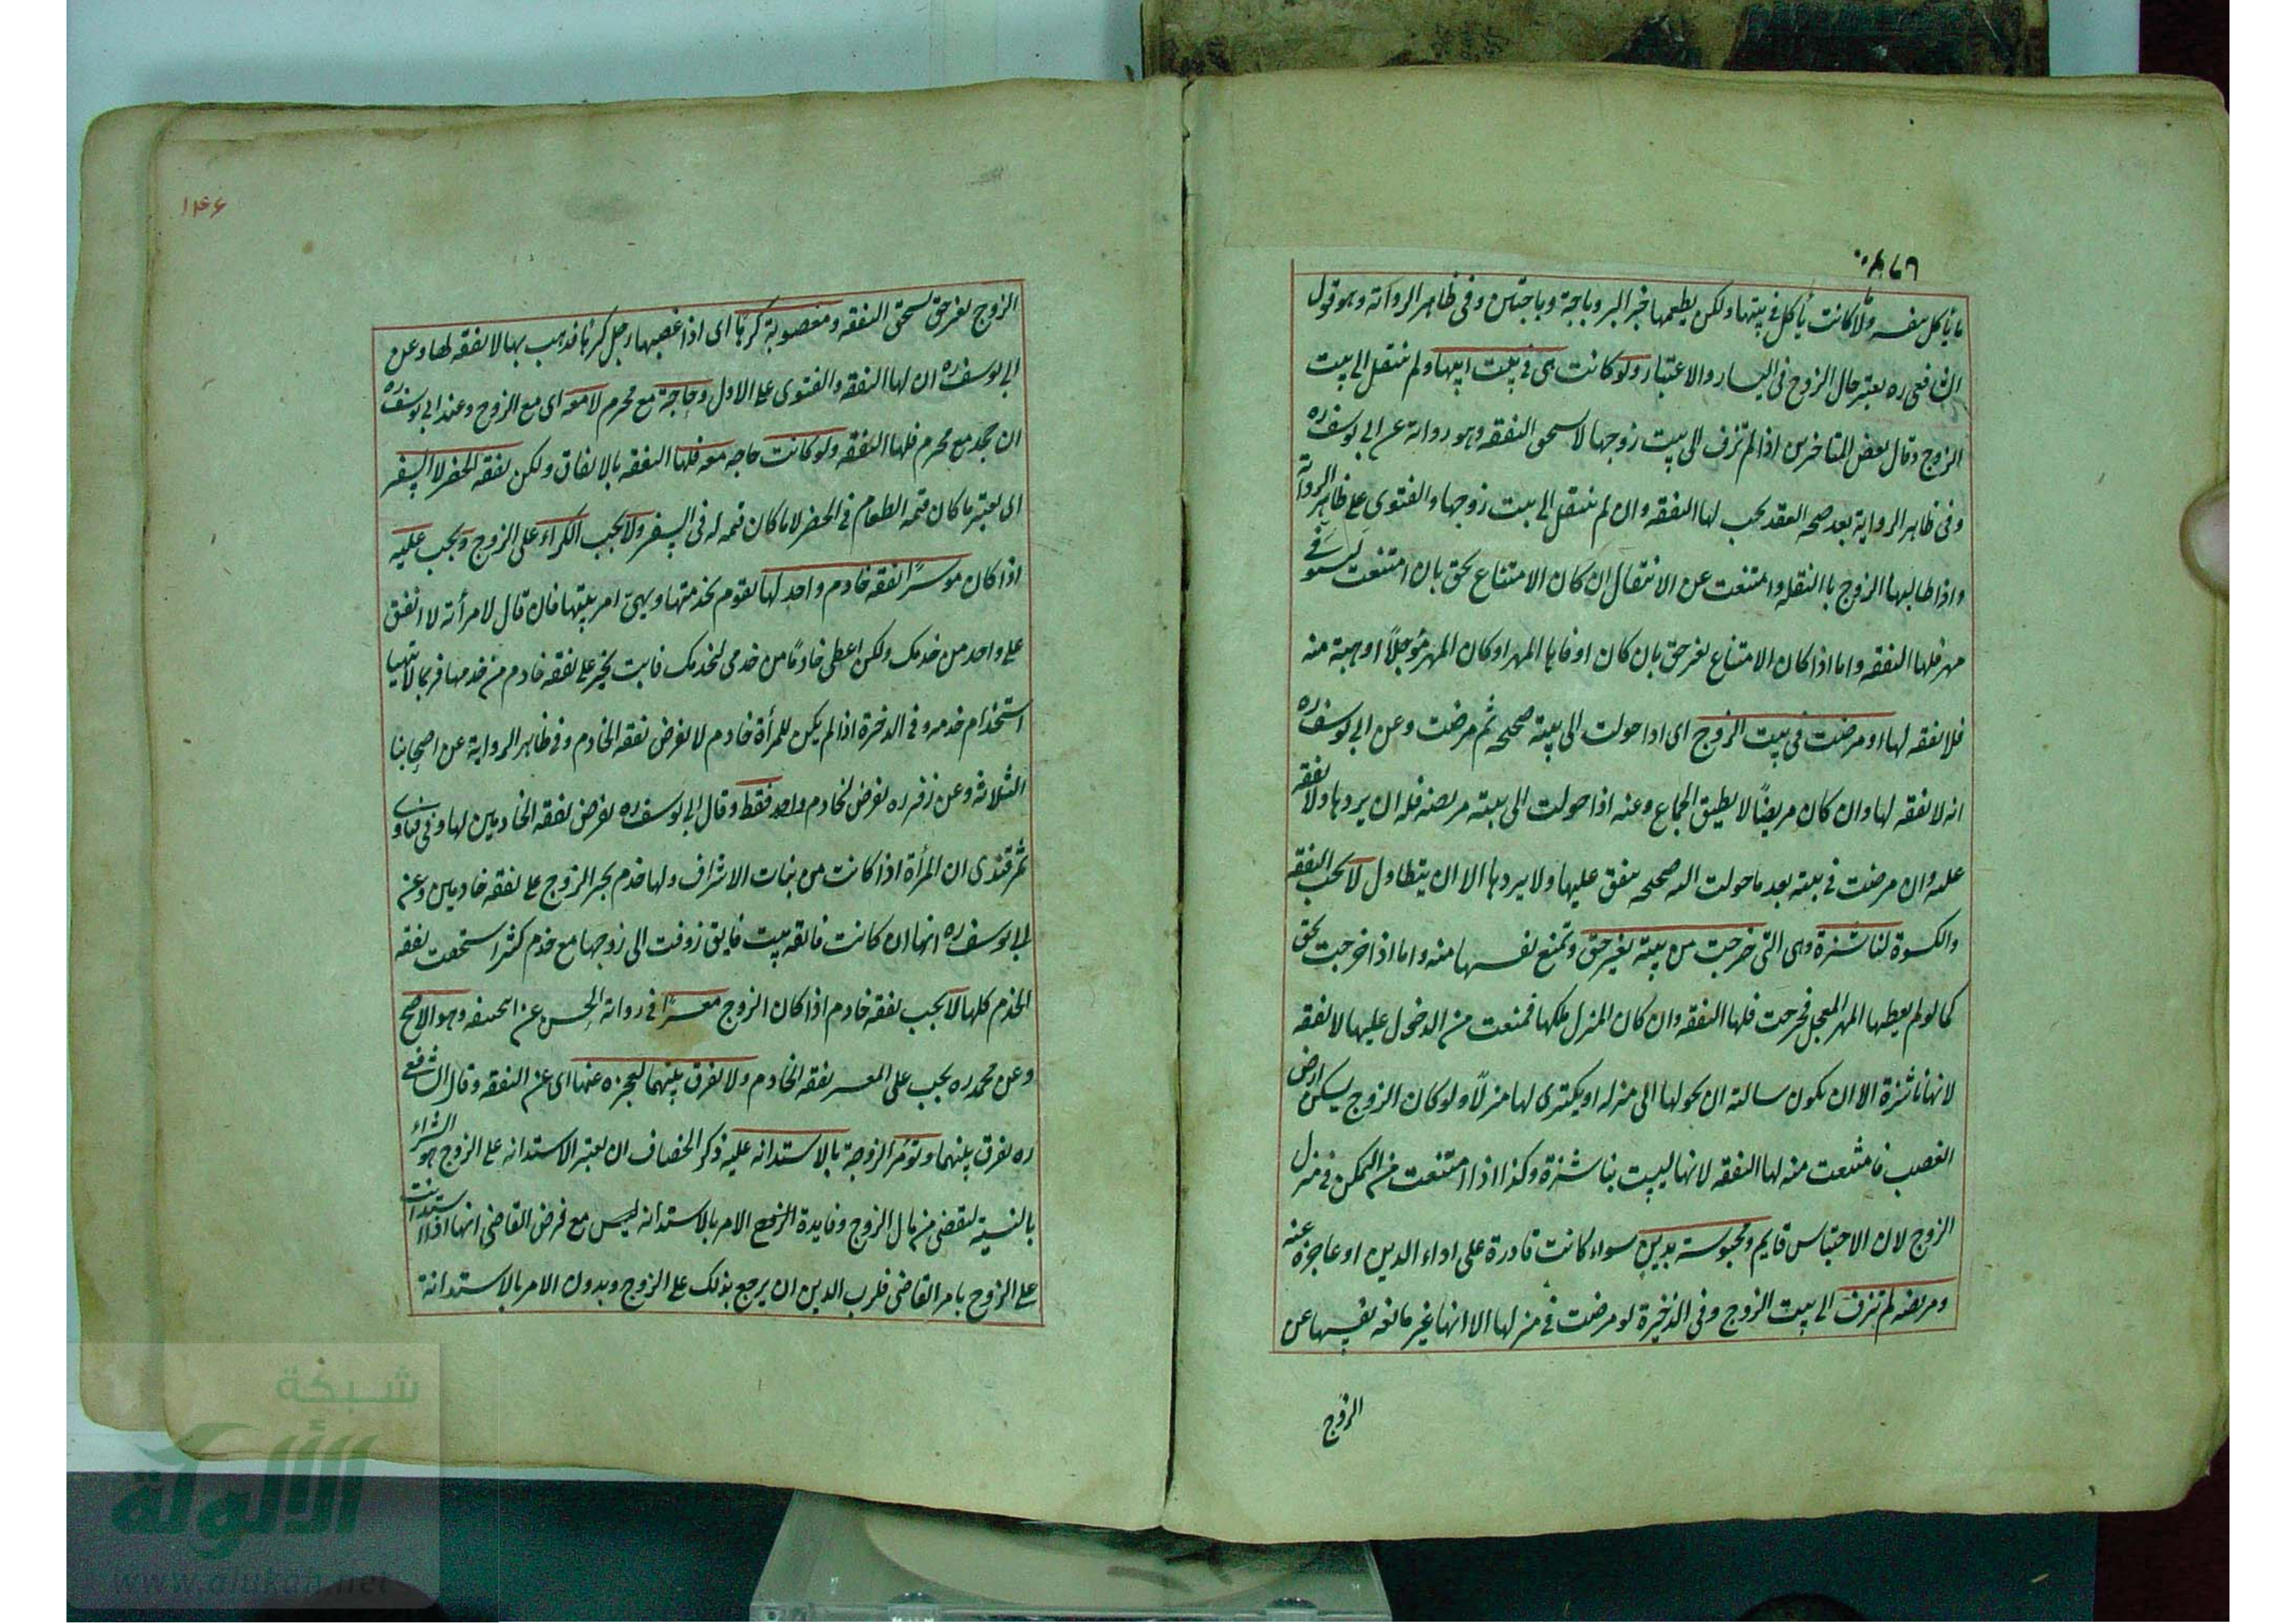 ما يأكل بنفسه ولا كانت تأكل في بيتها ولكن يطعمها خبز البر وباجة وباجتين وفي ظاهر الرواية وهو قول
الشافعي ره يعتبر حال الزوج في اليسار والاعتبار ولو كانت هي في بيت ابيها ولم تنتقل الى بيت
الزوج وقال بعض المتاخرين اذا لم تزف الى بيت زوجها لا تستحق النفقه وهو رواية عن ابي يوسف ره
وفي ظاهر الرواية بعد صحه العقد يجب لها النفقه وان لم تنتقل الى بيت زوجها والفتوى على ظاهر الرواية
واذا طالبها الزوج با النقله وامتنعت عن الانتقال ان كان الامتناع بحق بان امتنعت ليستوفي
مهر فلها النفقه واما اذا كان الامتناع بغير حق بان كان اوفاها المهر او كان المهر مؤجلاً او وهبته منه
فلا نفقه لها او مرضت في بيت الزوج اى اذا حولت الى بيته صحيحه ثم مرضت وعن ابي يوسف ره
انه لا نفقه لها وان كان مريضًا لا يطيق الجماع وعنه اذا حولت الى بيته مريضه فله ان يردها ولا نفقه
عليه وان مرضت في بيته بعد ما حولت اليه صحيحه ينفق عليها ولا يردها الا ان يتطاول لا تجب النفقه
والكسوة لناشزة وهى التى خرجت من بيته بغير حق وتمنع نفسها منه واما اذا خرجت بحق
كما لو لم يعطها المهر المعجل فخرجت فلها النفقه وان كان المنزل ملكها فمنعت من الدخول عليها لا نفقه
لانها ناشزة الا ان تكون سالته ان يحولها الى منزله او يكترى لها منزلاً ولو كان الزوج يسكن ارض
الغصب فامتنعت منه لها النفقه لانها ليست بناشزة وكذا اذا امتنعت من التمكن في منزل
الزوج لان الاحتباس قايم ومحبوسة بدين سواء كانت قادرة على اداء الدين او عاجزة عنه
ومريضه لم تزف الى بيت الزوج وفي الذخيرة لو مرضت في منزلها الا انها غير مانعه نفسها عن
الزوج
١٤۶
الزوج بغير حق تستحق النفقه ومغصوبة كرهًا اى اذا غصبها رجل كرها فذهب بها لا نفقه لها وعن
ابي يوسف ره ان لها النفقه والفتوى على الاول وحاجة مع محرم لا معه اى مع الزوج وعند ابي يوسف ره
ان تحج مع محرم فلها النفقه ولو كانت حاجه معه فلها النفقه بالاتفاق ولكن نفقه الحضر لا السفر
اى يعتبر ما كان قيمه الطعام في الحضر لا ما كان قيمه له في السفر ولا يجب الكراء على الزوج ويجب عليه
اذا كان موسرًا نفقه خادم واحد لها تقوم بخدمتها ويهيئ امر بيتها فان قال لامرأته لا انفق
على واحد من خدمك ولكن اعطى خادمًا من خدمى لتخدمك فابت يجبر على نفقه خادم من خدمها فربما لا يتهيا
استخدام خدمه وفي الذخيرة اذا لم يكن للمرأة خادم لا يفرض نفقه الخادم وفي ظاهر الرواية عن اصحابنا
الثلاثه وعن زفر ره يفرض لخادم واحد فقط وقال ابي يوسف ره يفرض نفقه الخادمين لها وفي فتاوى
ثمرقندى ان المرأة اذا كانت من بنات الاشراف ولها خدم يجبر الزوج على نفقه خادمين وعن
ابي يوسف ره انها ان كانت فائقه بيت فايق زوفت الى زوجها مع خدم كثير استحقت نفقه
الخدم كلها لا يجب نفقه خادم اذا كان الزوج معسرًا في رواية الحسن عن ابحنيفه وهو الاصح
وعن محمد ره يجب على المعسر نفقه الخادم ولا يفرق بينهما لعجزه عنها اى عن النفقه وقال الشافعي
ره يفرق بينهما وتؤمر الزوجة بالاستدانه عليه ذكر الخصاف ان يعتبر الاستدانه على الزوج هو الشراء
بالنسيئة لتقضى من مال الزوج وفايدة الامر بالاستدانه ليس مع فرض القاضى انها اذا استدانت
على الزوج بامر القاضى فلرب الدين ان يرجع بذلك على الزوج وبدون الامر بالاستدانة
شبكة
الألوكة
www.alukah.net